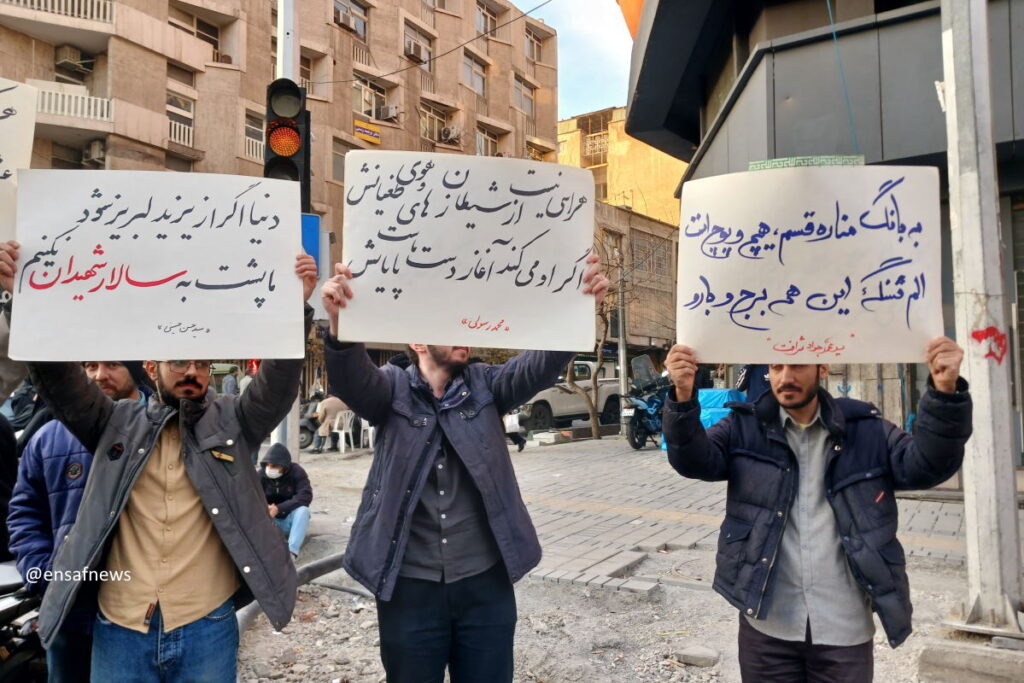 دنیا اگر از یزید لبریز شود
ما پشت به سالار شهیدان نکنیم
«سید حسن حسینی»
هراسی نیست از شیطان و های هوی طغیانش
اگر او می کند آغاز دست ماست پایانش
«محمد رسولی»
به بانگ مناره قسم، هیچ و پوچ است
الم شنگه این همه برج و بارو
"سید محمد جواد شرافت"
@ensafnews